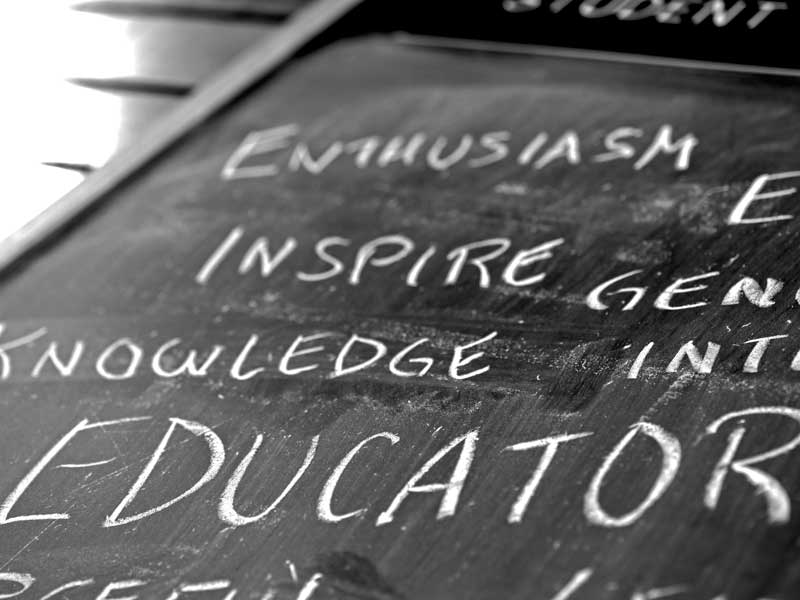 STUDENT
ENTHUSIASM E
INSPIRE GEN
KNOWLEDGE INT
EDUCATOR